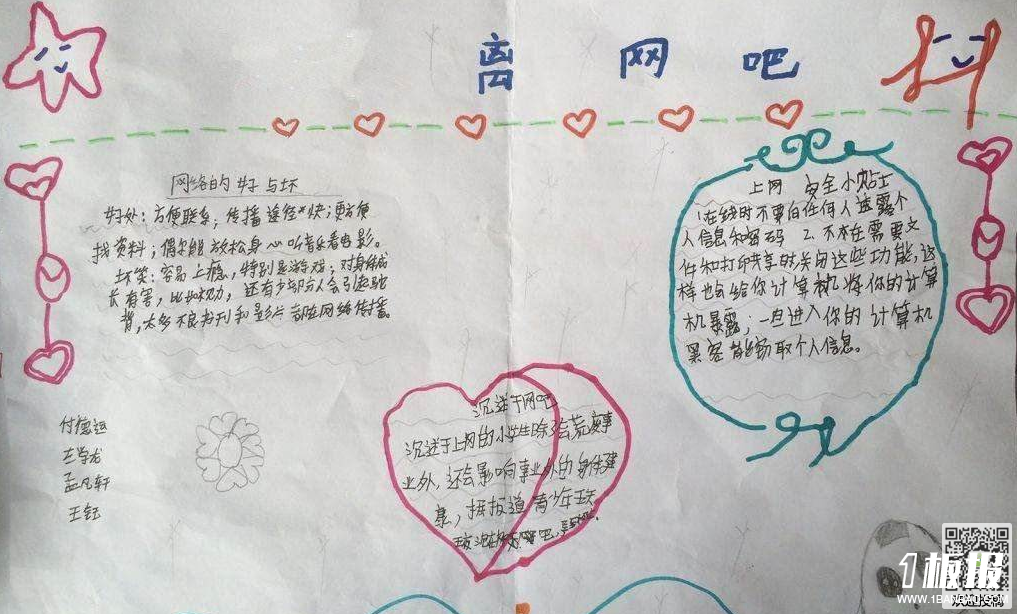 离 网 吧
网络的好与坏
好处：方便联系；传播途径*快；更方便
找资料；偶尔能放松身心听音乐看电影。
坏笑：容易上瘾，特别是游戏；对身体成
长有害，比如视力，还有少部分人会引起驼
背，太多不良书刊和影片都在网络传播。
上网 安全小贴士
1.在线时不要向任何人透露个
人信息和密码 2.不在需要文
件和打印共享时关闭这些功能，这
样也会给你计算机将你的计算
机暴露；一旦进入你的计算机
黑客能窃取个人信息。
沉迷于网吧
沉迷于上网的小学生除了会荒废事
业外，还会影响事业外的身体健
康，据报道青少年
付德运
王学龙
孟凡轩
王钰
1板报
WWW.1BANBAO.COM